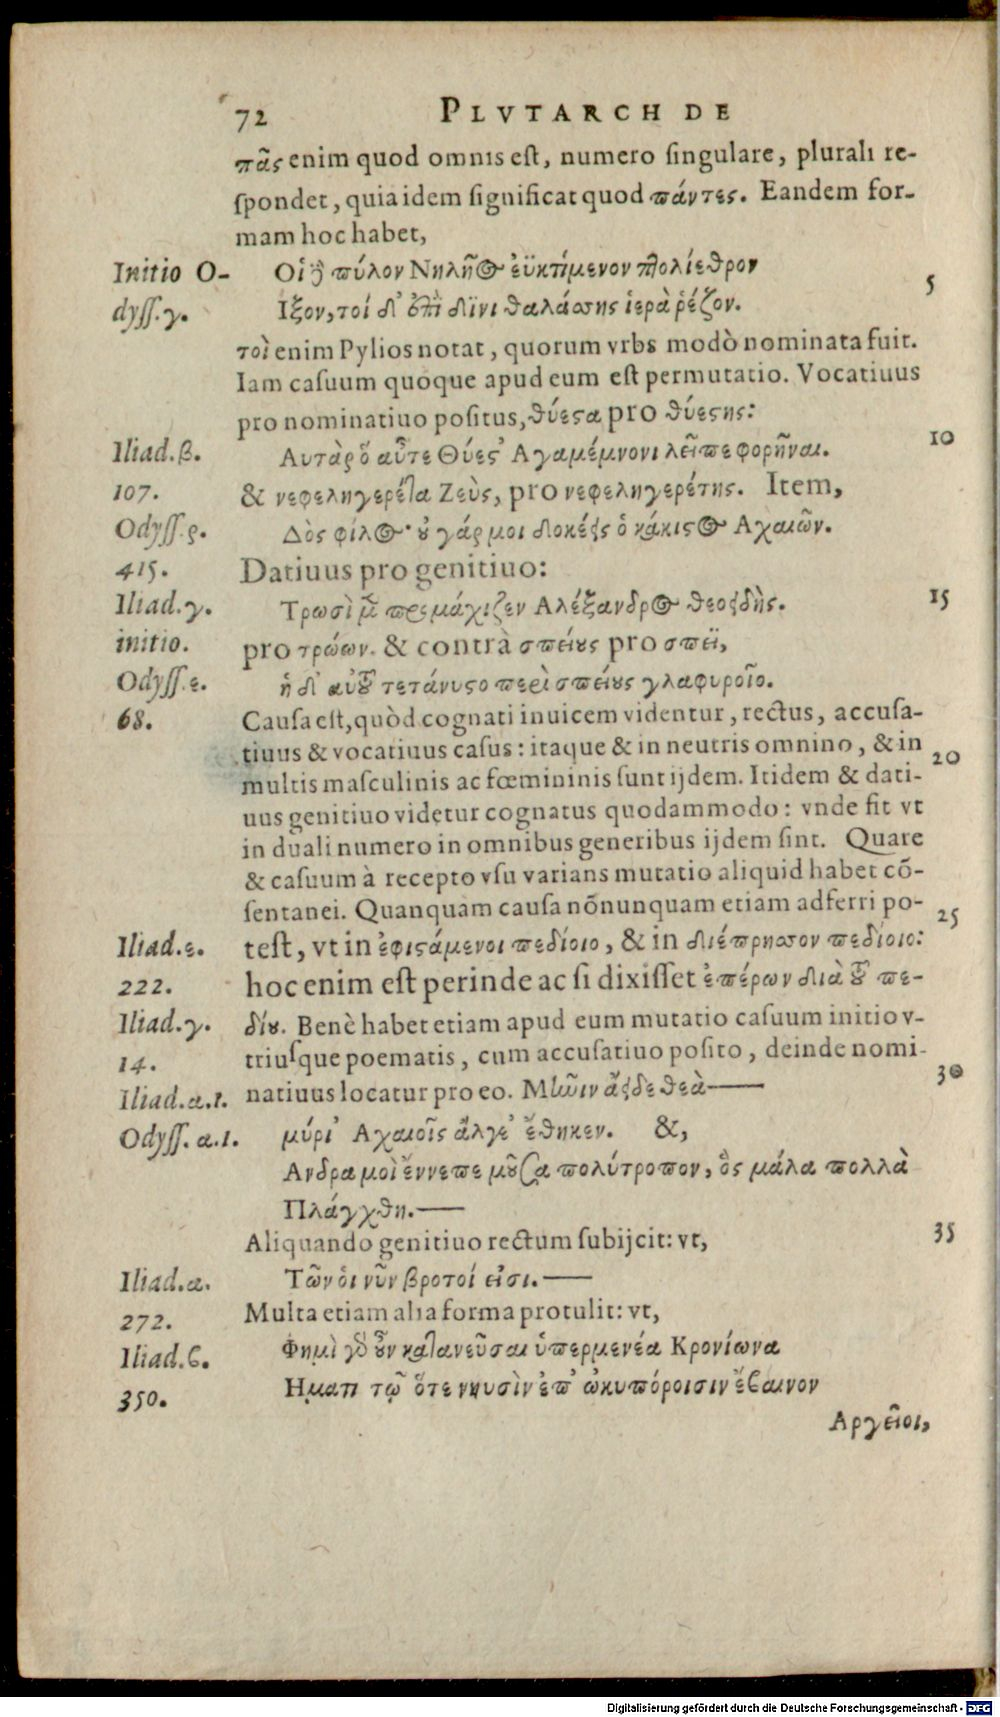 72 PLVTARCH DE
πᾶς enim quod omnis est, numero singulare, plurali re-
spondet, quia idem significat quod πάντες. Eandem for-
mam hoc habet,
Initio O- Οἱ ἢ πύλον Νηλῆος ἐϋκτίμενον πτολίεθρον
5
dyss. γ. Ιξον, τοί δ' ἐπὶ δῖνι θαλάσσης ἱερὰ ῥέζον.
τοὶ enim Pylios notat, quorum vrbs modò nominata fuit.
Iam casuum quoque apud eum est permutatio. Vocatiuus
pro nominatiuo positus, θύεστα pro θύεστης:
10
Iliad. β. Αυτὰρ ὅ αὖτε Θύεστ' Αγαμέμνονι λεῖπε φορῆναι.
107. & νεφεληγερέτα Ζεὺς, pro νεφεληγερέτης. Item,
Odyss. ρ. Δὸς φίλος· ȣ γάρ μοι δοκέεις ὁ κάκιστος Αχαιῶν.
415. Datiuus pro genitiuo:
15
Iliad. γ. Τρωσὶ μ̃ προμάχιζεν Αλέξανδρος θεοειδὴς.
initio. pro τρώων. & contrà σπείȣς pro σπεῖ,
Odyss. ε. ἡ δ' αὐτȣ τετάνυστο περὶ σπείȣς γλαφυροῖο.
68. Causa est, quòd cognati inuicem videntur, rectus, accusa-
tiuus & vocatiuus casus: itaque & in neutris omnino, & in
20
multis masculinis ac fœmininis sunt ijdem. Itidem & dati-
uus genitiuo videtur cognatus quodammodo: vnde fit vt
in duali numero in omnibus generibus ijdem sint. Quare
& casuum à recepto vsu varians mutatio aliquid habet cō-
sentanei. Quanquam causa nōnunquam etiam adferri po-
25
Iliad. ε. test, vt in ἐφιστάμενοι πεδίοιο, & in διέπρησσον πεδίοιο:
222. hoc enim est perinde ac si dixisset ἐπέρων διὰ τȣ πε-
Iliad. γ. δίȣ. Benè habet etiam apud eum mutatio casuum initio v-
14. triusque poematis, cum accusatiuo posito, deinde nomi-
30
Iliad. α. 1. natiuus locatur pro eo. Μῆνιν ἄειδε θεὰ——
Odyss. α. 1. μύρι' Αχαιοῖς ἄλγε' ἔθηκεν. &,
Ανδρα μοὶ ἔννεπε μȣσα πολύτροπον, ὃς μάλα πολλὰ
Πλάγχθη.——
35
Aliquando genitiuo rectum subijcit: vt,
Iliad. α. Τῶν ὁι νῦν βροτοί εἰσι.——
272. Multa etiam alia forma protulit: vt,
Iliad. ϐ. Φημὶ γὸ ȣν κατανεῦσαι ὑπερμενέα Κρονίωνα
350. Ηματι τῷ ὅτε νηυσὶν ἐπ' ὠκυπόροισιν ἔϐαινον
Αργεῖοι,
Digitalisierung gefördert durch die Deutsche Forschungsgemeinschaft - DFG